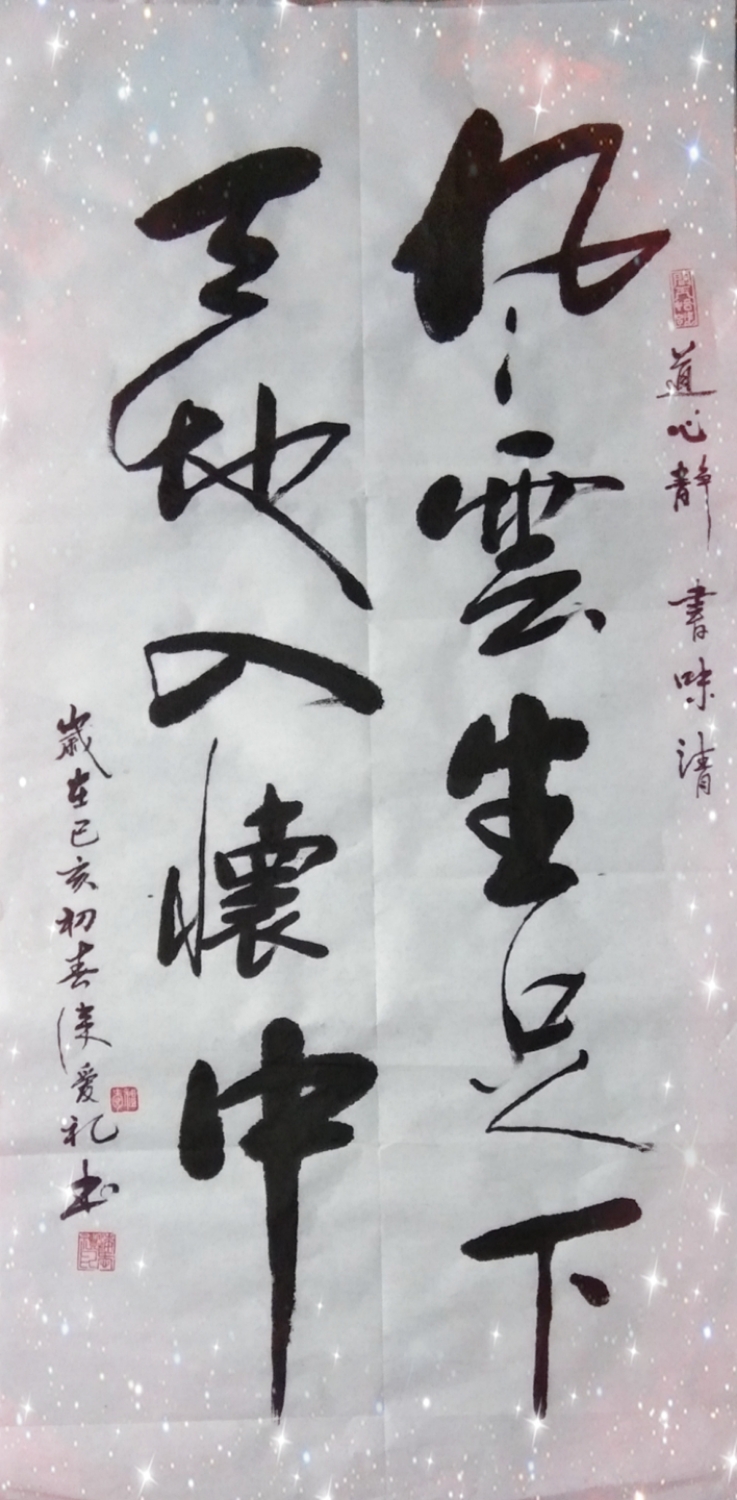 道心静 書味清
风雲生足下
天地入懷中
歲在己亥初春 愛礼书